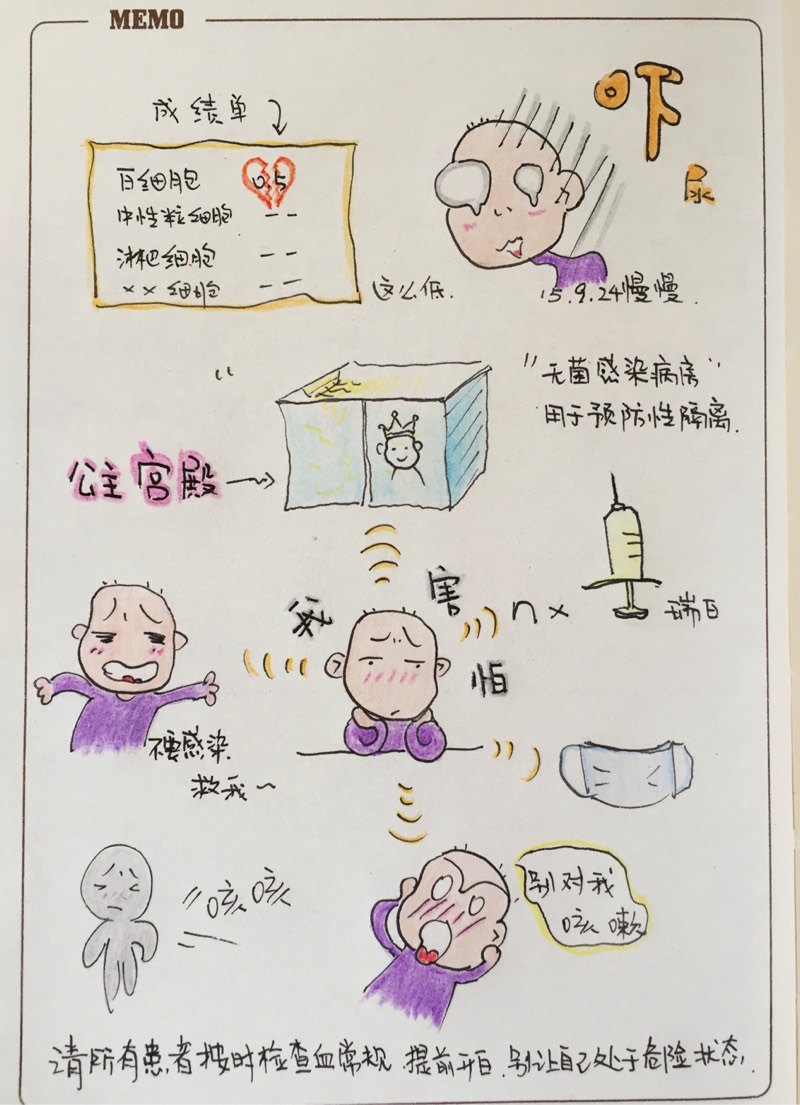 MEMO
成绩单
白细胞 0.5
中性粒细胞 --
淋巴细胞 --
××细胞 --
这么低.
吓
尿
15.9.24慢慢.
"无菌感染病房"
用于预防性隔离.
公主宫殿
我
害
怕
n×
瑞白
不要感染
救我~
咳咳
别对我
咳嗽
请所有患者按时检查血常规.提前升白.别让自己处于危险状态.